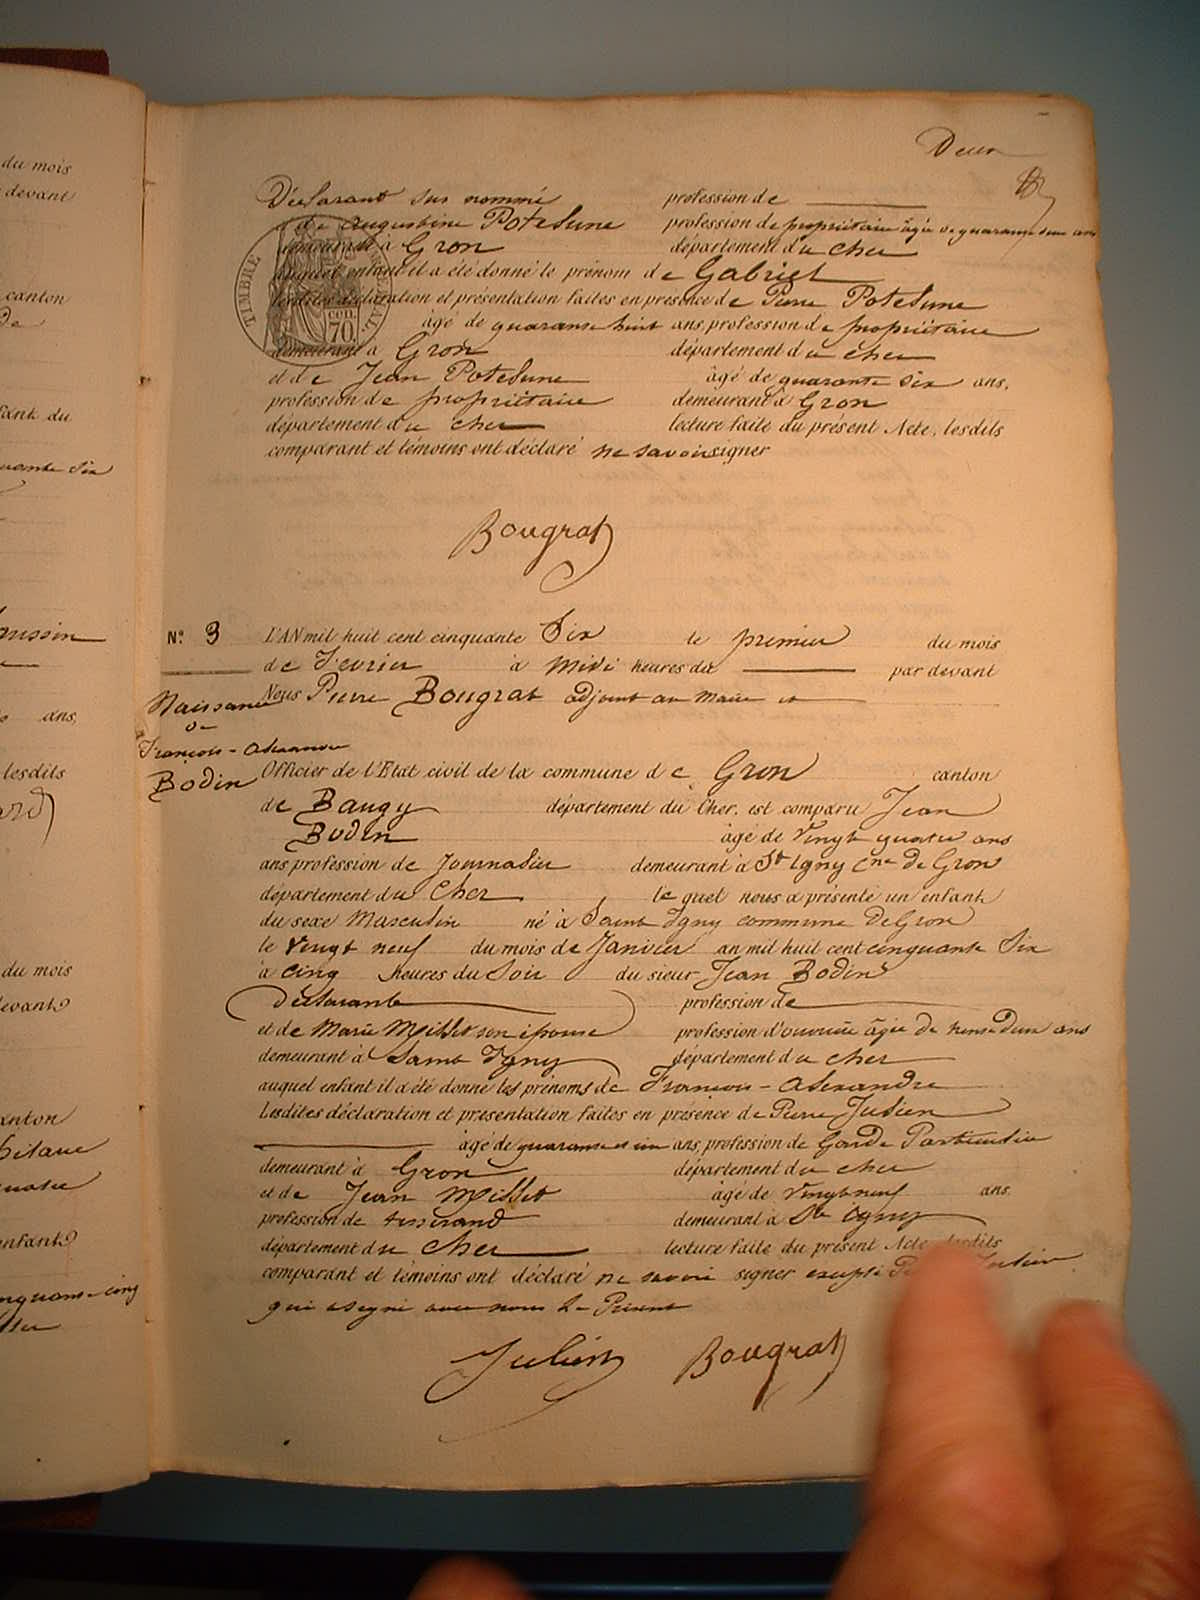 du mois
devant
canton
de
fant du
quante Six
ans,
lesdits
du mois
devant
canton
quatre
enfant
Deux
Déclarant sus nommé profession de
et de augustine Potesune profession de propriétaire âgée de quarante deux ans
demeurant à Gron département du cher
auquel enfant il a été donné le prénom de Gabriel
lesdites déclaration et présentation faites en présence de Pierre Potesune
âgé de quarante huit ans, profession de propriétaire
demeurant à Gron département du cher
et de Jean Potesune âgé de quarante six ans,
profession de propriétaire demeurant à Gron
département du cher lecture faite du présent Acte, lesdits
comparant et témoins ont déclaré ne savoir signer
TIMBRE
cen.
70.
Bougrat
N° 3 L'AN mil huit cent cinquante Six le premier du mois
de Fevrier à Midi heures du par devant
Nous Pierre Bougrat adjoint au Maire et
Naissance
de
François-Alexandre
Bodin
Officier de l'Etat civil de la commune de Gron canton
de Baugy département du Cher, est comparu Jean
Bodin âgé de vingt quatre ans
ans profession de Journalier demeurant à St Igny cne de Gron
département du Cher le quel nous a présenté un enfant
du sexe Masculin né à Saint Igny commune de Gron
le vingt neuf du mois de Janvier an mil huit cent cinquante Six
à cinq heures du Soir du sieur Jean Bodin
déclarant profession de
et de Marie Millet son épouse profession d'ouvrière âgée de trente deux ans
demeurant à Saint Igny département du cher
auquel enfant il a été donné les prénoms de François-Alexandre
Lesdites déclaration et présentation faites en présence de Pierre Julien
âgé de quarante et un ans, profession de Garde Particulier
demeurant à Gron département du cher
et de Jean Millet âgé de vingt neuf ans.
profession de tisserand demeurant à St Igny
département du Cher lecture faite du présent Acte lesdits
comparant et témoins ont déclaré ne savoir signer excepté Julien
qui a signé avec nous le Présent
Julien Bougrat